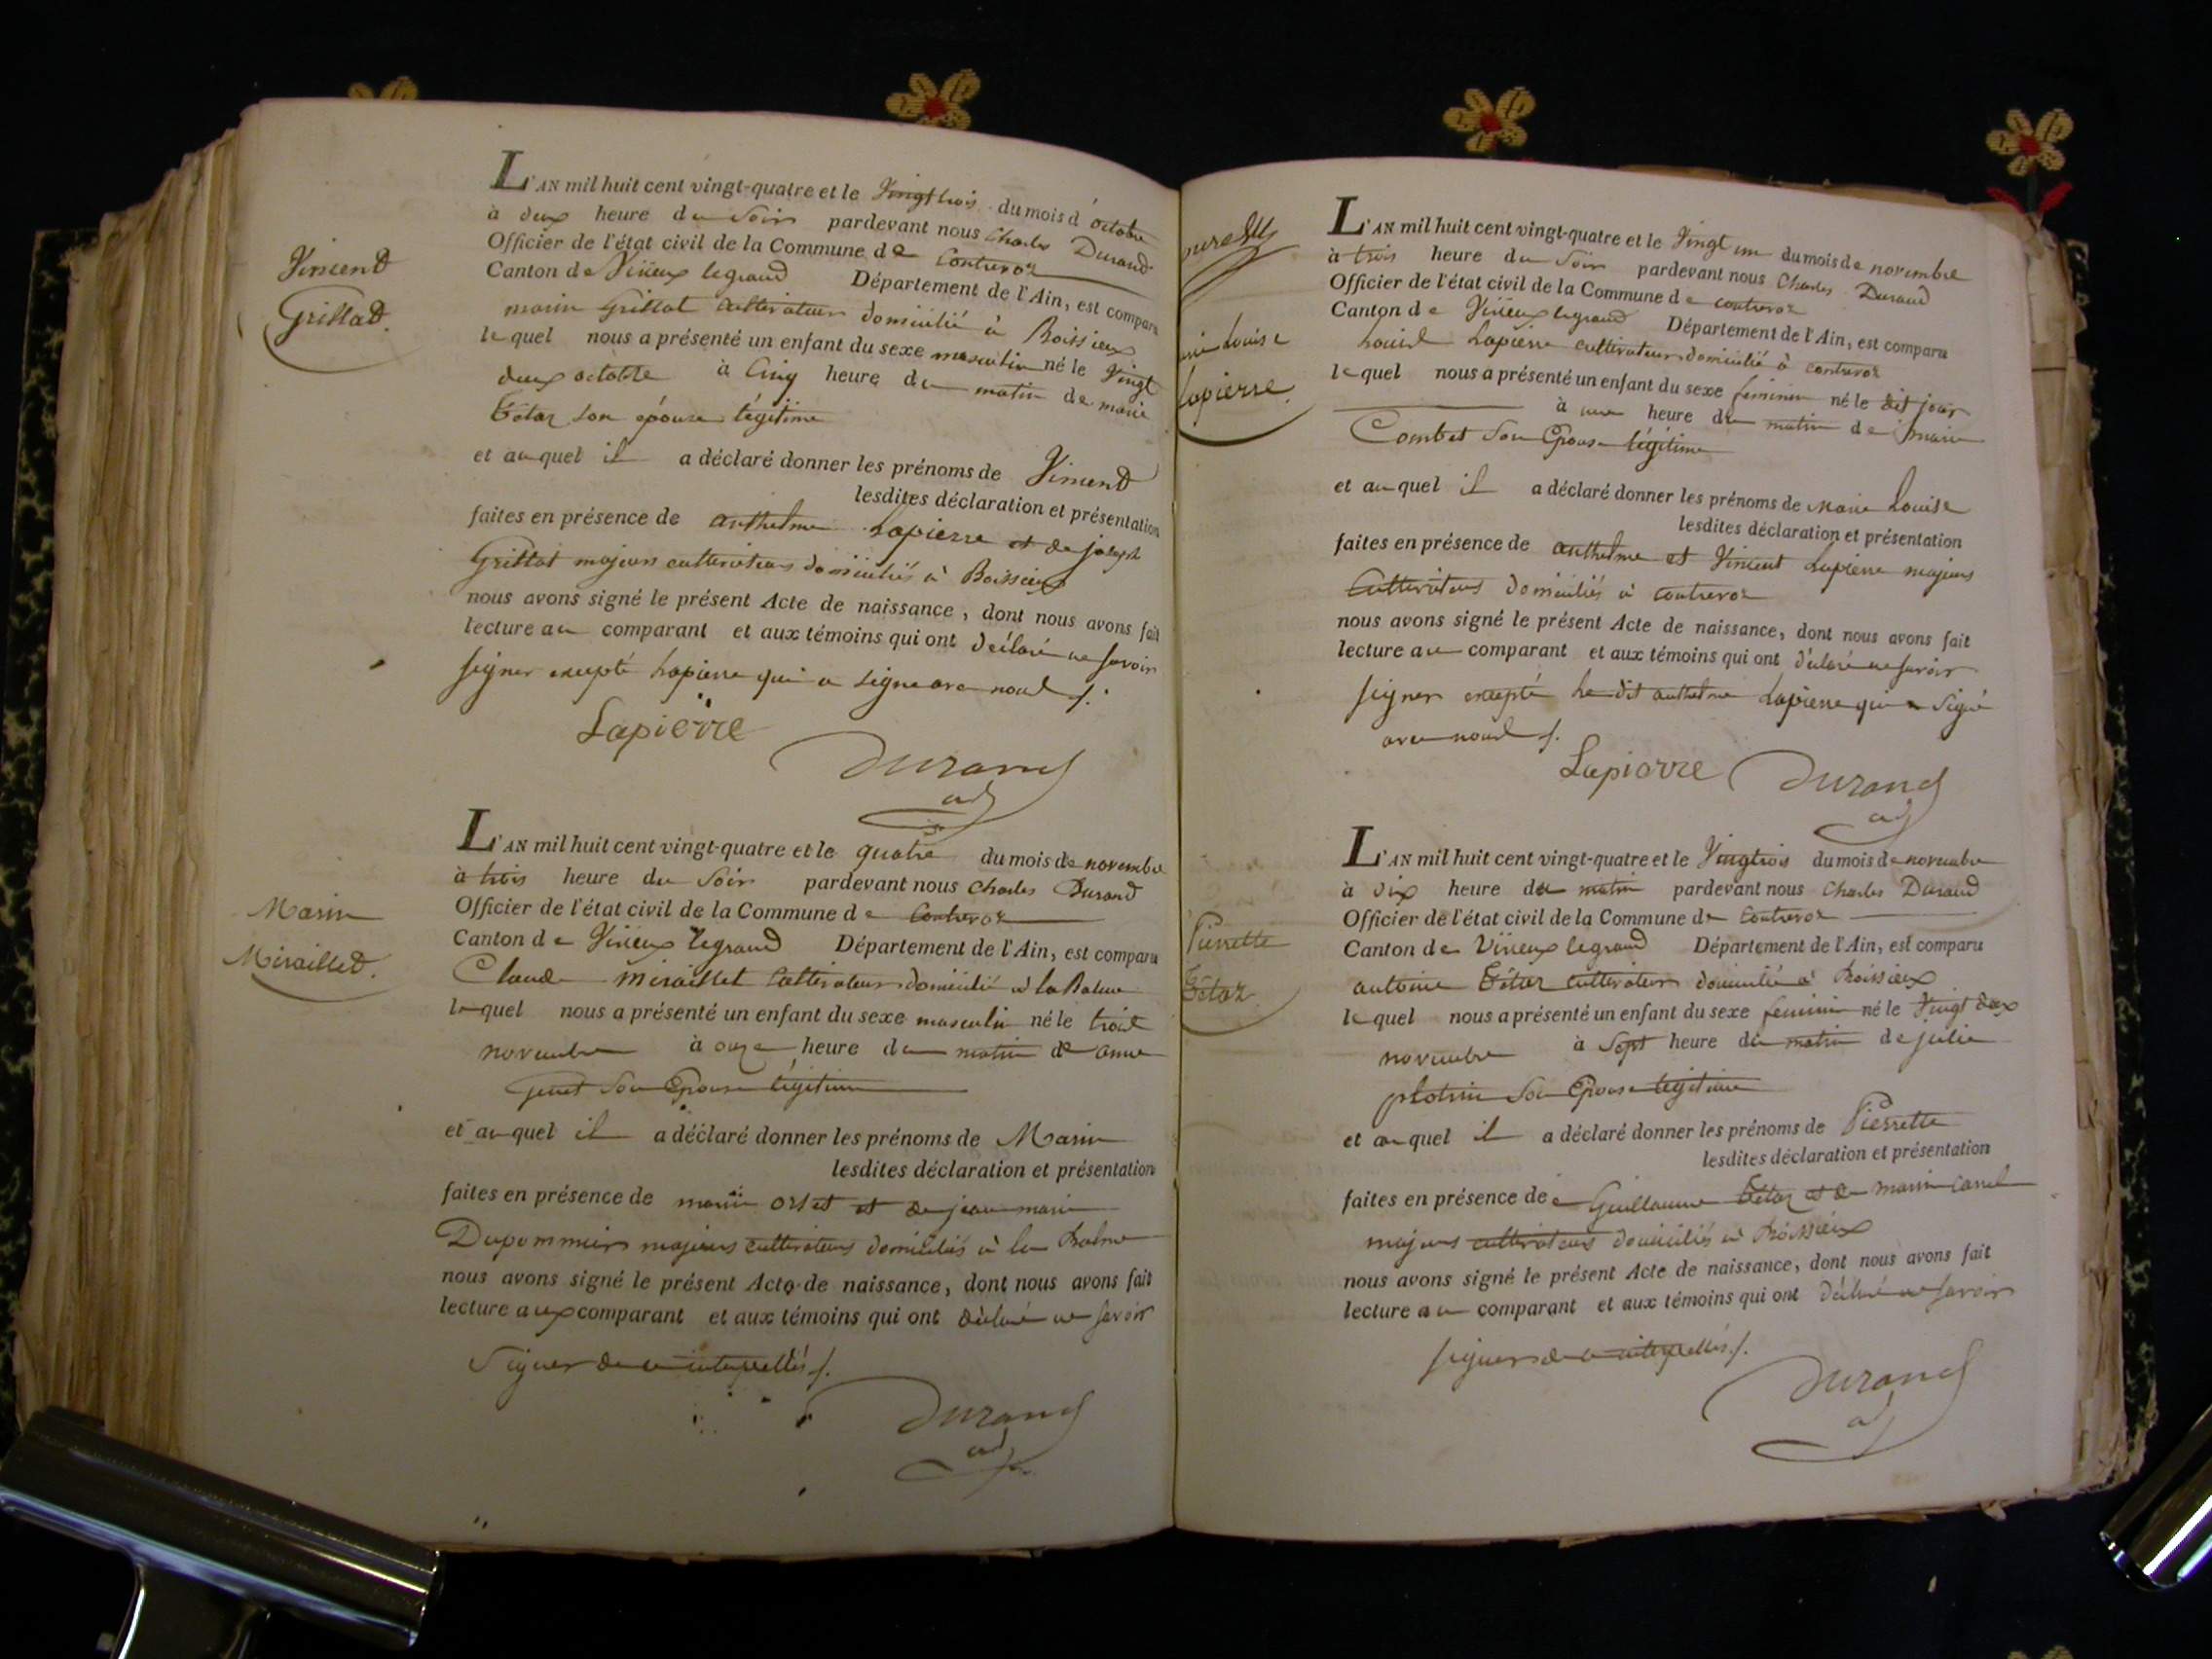 Vincent
Grillat.
L'AN mil huit cent vingt-quatre et le Vingt trois du mois d'octobre
à deux heure du Soir pardevant nous Charles Durand
Officier de l'état civil de la Commune de Contrevoz
Canton de Virieux legrand Département de l'Ain, est comparu
marin Grillat Cultivateur domicilié à Boissieux
lequel nous a présenté un enfant du sexe masculin né le Vingt
deux octobre à Cinq heure du matin de marie
Tétaz son épouse légitime
et auquel il a déclaré donner les prénoms de Vincent
lesdites déclaration et présentation
faites en présence de anthelme Lapierre et de joseph
Grillat majeurs cultivateurs domiciliés à Boissieux
nous avons signé le présent Acte de naissance, dont nous avons fait
lecture au comparant et aux témoins qui ont déclaré ne savoir
signer excepté Lapierre qui a signé avec nous /.
Lapierre
Durand
adj
Marin
Miraillet.
L'AN mil huit cent vingt-quatre et le quatre du mois de novembre
à trois heure du Soir pardevant nous Charles Durand
Officier de l'état civil de la Commune de Contrevoz
Canton de Virieux legrand Département de l'Ain, est comparu
Claude Miraillet Cultivateur domicilié à la Balme
lequel nous a présenté un enfant du sexe masculin né le trois
novembre à onze heure du matin de anne
Genet Son Epouse légitime
et auquel il a déclaré donner les prénoms de Marin
lesdites déclaration et présentation
faites en présence de marin orset et de jean marie
Dupommier majeurs cultivateurs domiciliés à la Balme
nous avons signé le présent Acte de naissance, dont nous avons fait
lecture aux comparant et aux témoins qui ont déclaré ne savoir
Signer de ce interpellés /.
Durand
adj
Louise
Lapierre.
L'AN mil huit cent vingt-quatre et le Vingt un du mois de novembre
à trois heure du Soir pardevant nous Charles Durand
Officier de l'état civil de la Commune de contrevoz
Canton de Virieux legrand Département de l'Ain, est comparu
Louis Lapierre cultivateur domicilié à contrevoz
lequel nous a présenté un enfant du sexe feminin né le dit jour
à une heure du matin de marie
Combet Son Epouse légitime
et auquel il a déclaré donner les prénoms de Marie Louise
lesdites déclaration et présentation
faites en présence de anthelme et Vincent Lapierre majeurs
Cultivateurs domiciliés à contrevoz
nous avons signé le présent Acte de naissance, dont nous avons fait
lecture au comparant et aux témoins qui ont déclaré ne savoir
signer excepté Le dit anthelme Lapierre qui a Signé
avec nous /.
Lapierre Durand
adj
Pierrette
Tétaz.
L'AN mil huit cent vingt-quatre et le Vingtrois du mois de novembre
à dix heure du matin pardevant nous Charles Durand
Officier de l'état civil de la Commune de Contrevoz
Canton de Virieux legrand Département de l'Ain, est comparu
antoine Tétaz cultivateur domicilié à Boissieux
lequel nous a présenté un enfant du sexe feminin né le Vingt deux
novembre à Sept heure du matin de julie
plotin Son Epouse légitime
et auquel il a déclaré donner les prénoms de Pierrette
lesdites déclaration et présentation
faites en présence de Guillaume Tétaz et de marin Carrel
majeurs cultivateurs domiciliés à Boissieux
nous avons signé le présent Acte de naissance, dont nous avons fait
lecture au comparant et aux témoins qui ont déclaré ne savoir
signer de ce interpellés /.
Durand
adj